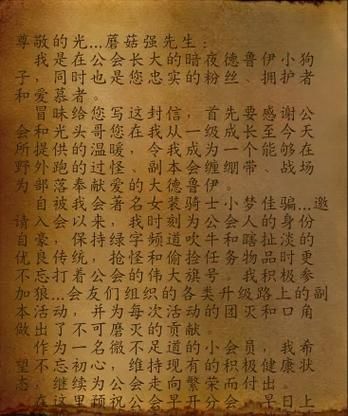 尊敬的光...蘑菇强先生：
我是在公会长大的暗夜德鲁伊小狗
子，同时也是您忠实的粉丝、拥护者
和爱慕者。
冒昧给您写这封信，首先要感谢公
会和光头哥您在我从一级成长至今天
所提供的温暖，令我成为一个能够在
野外跑的过怪、副本会缠绷带、战场
为部落奉献爱的大德鲁伊。
自被我会著名女装骑士小梦佳骗...邀
请入会以来，我时刻为公会人的身份
自豪，保持绿字频道吹牛和瞎扯淡的
优良传统，抢怪和偷捡任务物品时更
不忘打着公会的伟大旗号。我积极参
加狼...会友们组织的各类升级路上的副
本活动，并为每次活动的团灭和口角
做出了不可磨灭的贡献。
作为一名微不足道的小会员，我希
望不忘初心，维持现有的积极健康状
态，继续为公会走向繁荣而付出。
在这里预祝公会早开分会，早日上